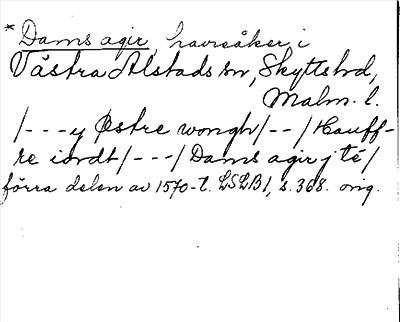 * Dams agir, havreåker i
Västra Alstads sn, Skytts hd,
Malm. l.
/---y Østre wongh/--/Hauff-
re iordt/---/Dams agir j té/
förra delen av 1570-t. LSLB1, s. 368. orig.